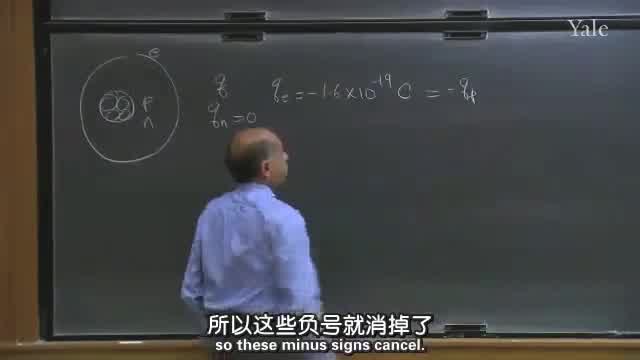 Yale
e
q
q_e = -1.6 × 10^-19 C = -q_p
P
n
q_n = 0
所以这些负号就消掉了
so these minus signs cancel.